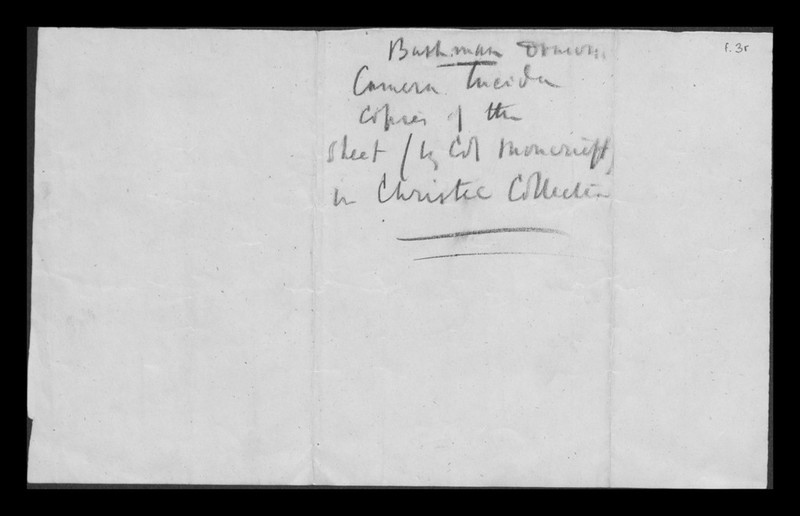 f. 3r
Bushman
Camera Lucida
copies of the
sheet (by Col Moncrieff)
in Christie Collection